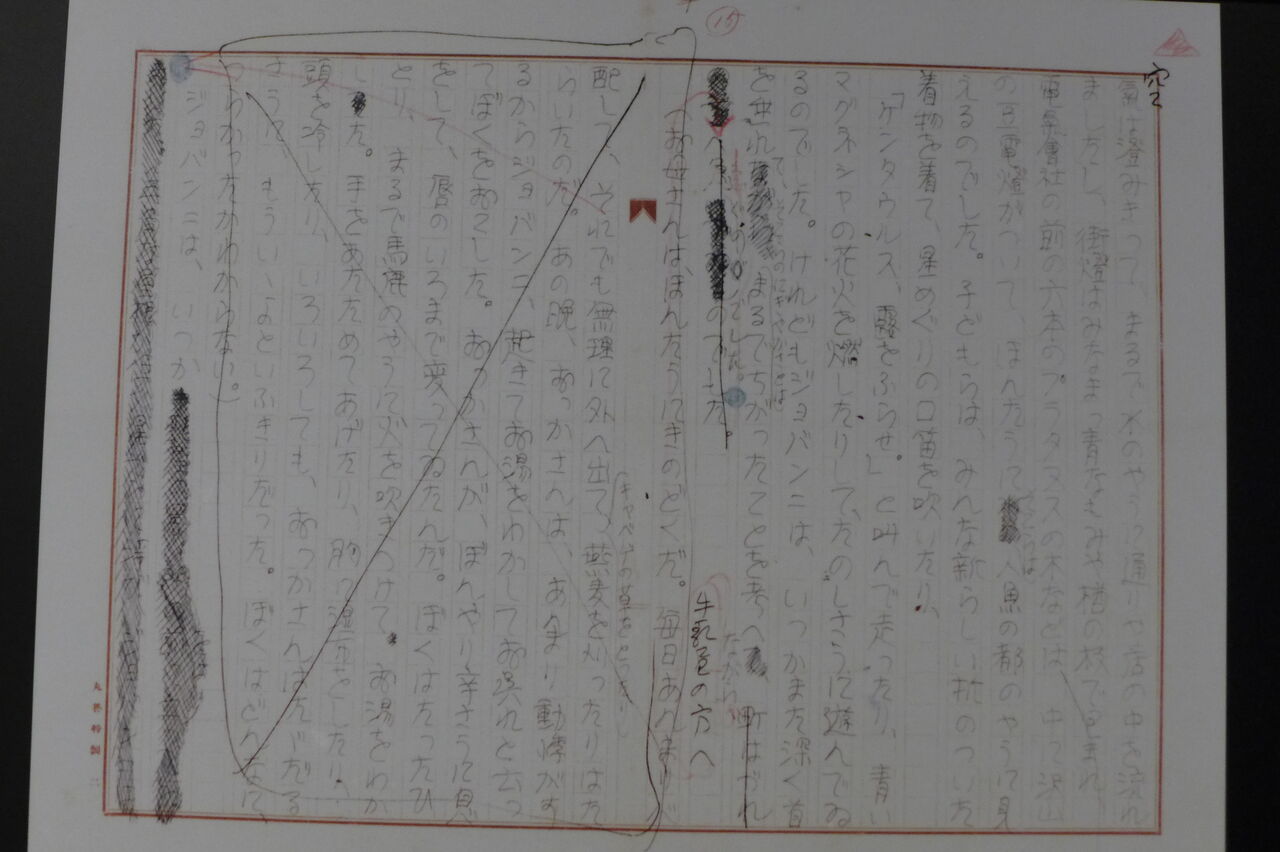 15
空
氣は澄みきって、まるで水のやうに通りや店の中を流れ
ましたし、街燈はみなまっ青なもみや楢の枝で包まれ、
電氣會社の前の六本のプラタヌスの木などは、中に沢山
の豆電燈がついて、ほんたうにそこらは人魚の都のやうに見
えるのでした。子どもらは、みんな新らしい折のついた
着物を着て、星めぐりの口笛を吹いたり、
「ケンタウルス、露をふらせ。」と叫んで走ったり、青い
マグネシヤの花火を燃したりして、たのしさうに遊んでゐ
るのでした。けれどもジョバンニは、いつかまた深く首
を垂れて、そこらのにぎやかさとは
まるでちがったことを考へながら、
町はづれ
牛乳屋の方へ
へ
急ぐのでした。
のでした。
(お母さんは、ほんたうにきのどくだ。毎日あんまり
配して、それでも無理に外へ出て、
キャベヂの草をとったり
燕麦を刈ったりはた
らいたのだ。あの晩、おっかさんは、あんまり動悸がす
るからジョバンニ、起きてお湯をわかしてお呉れと云っ
てぼくをおこした。おっかさんが、ぼんやり辛さうに息
をして、唇のいろまで変ってゐたんだ。ぼくはたったひ
とり、まるで馬鹿のやうに火を吹きつけて、お湯をわか
した。手をあたためてあげたり、胸に湿布をしたり、
頭を冷したり、いろいろしても、おっかさんはたゞだる
さうに、もういゝよといふきりだった。ぼくはどんなに、
つらかったかわからない。)
ジョバンニは、いつか
丸善特製 二